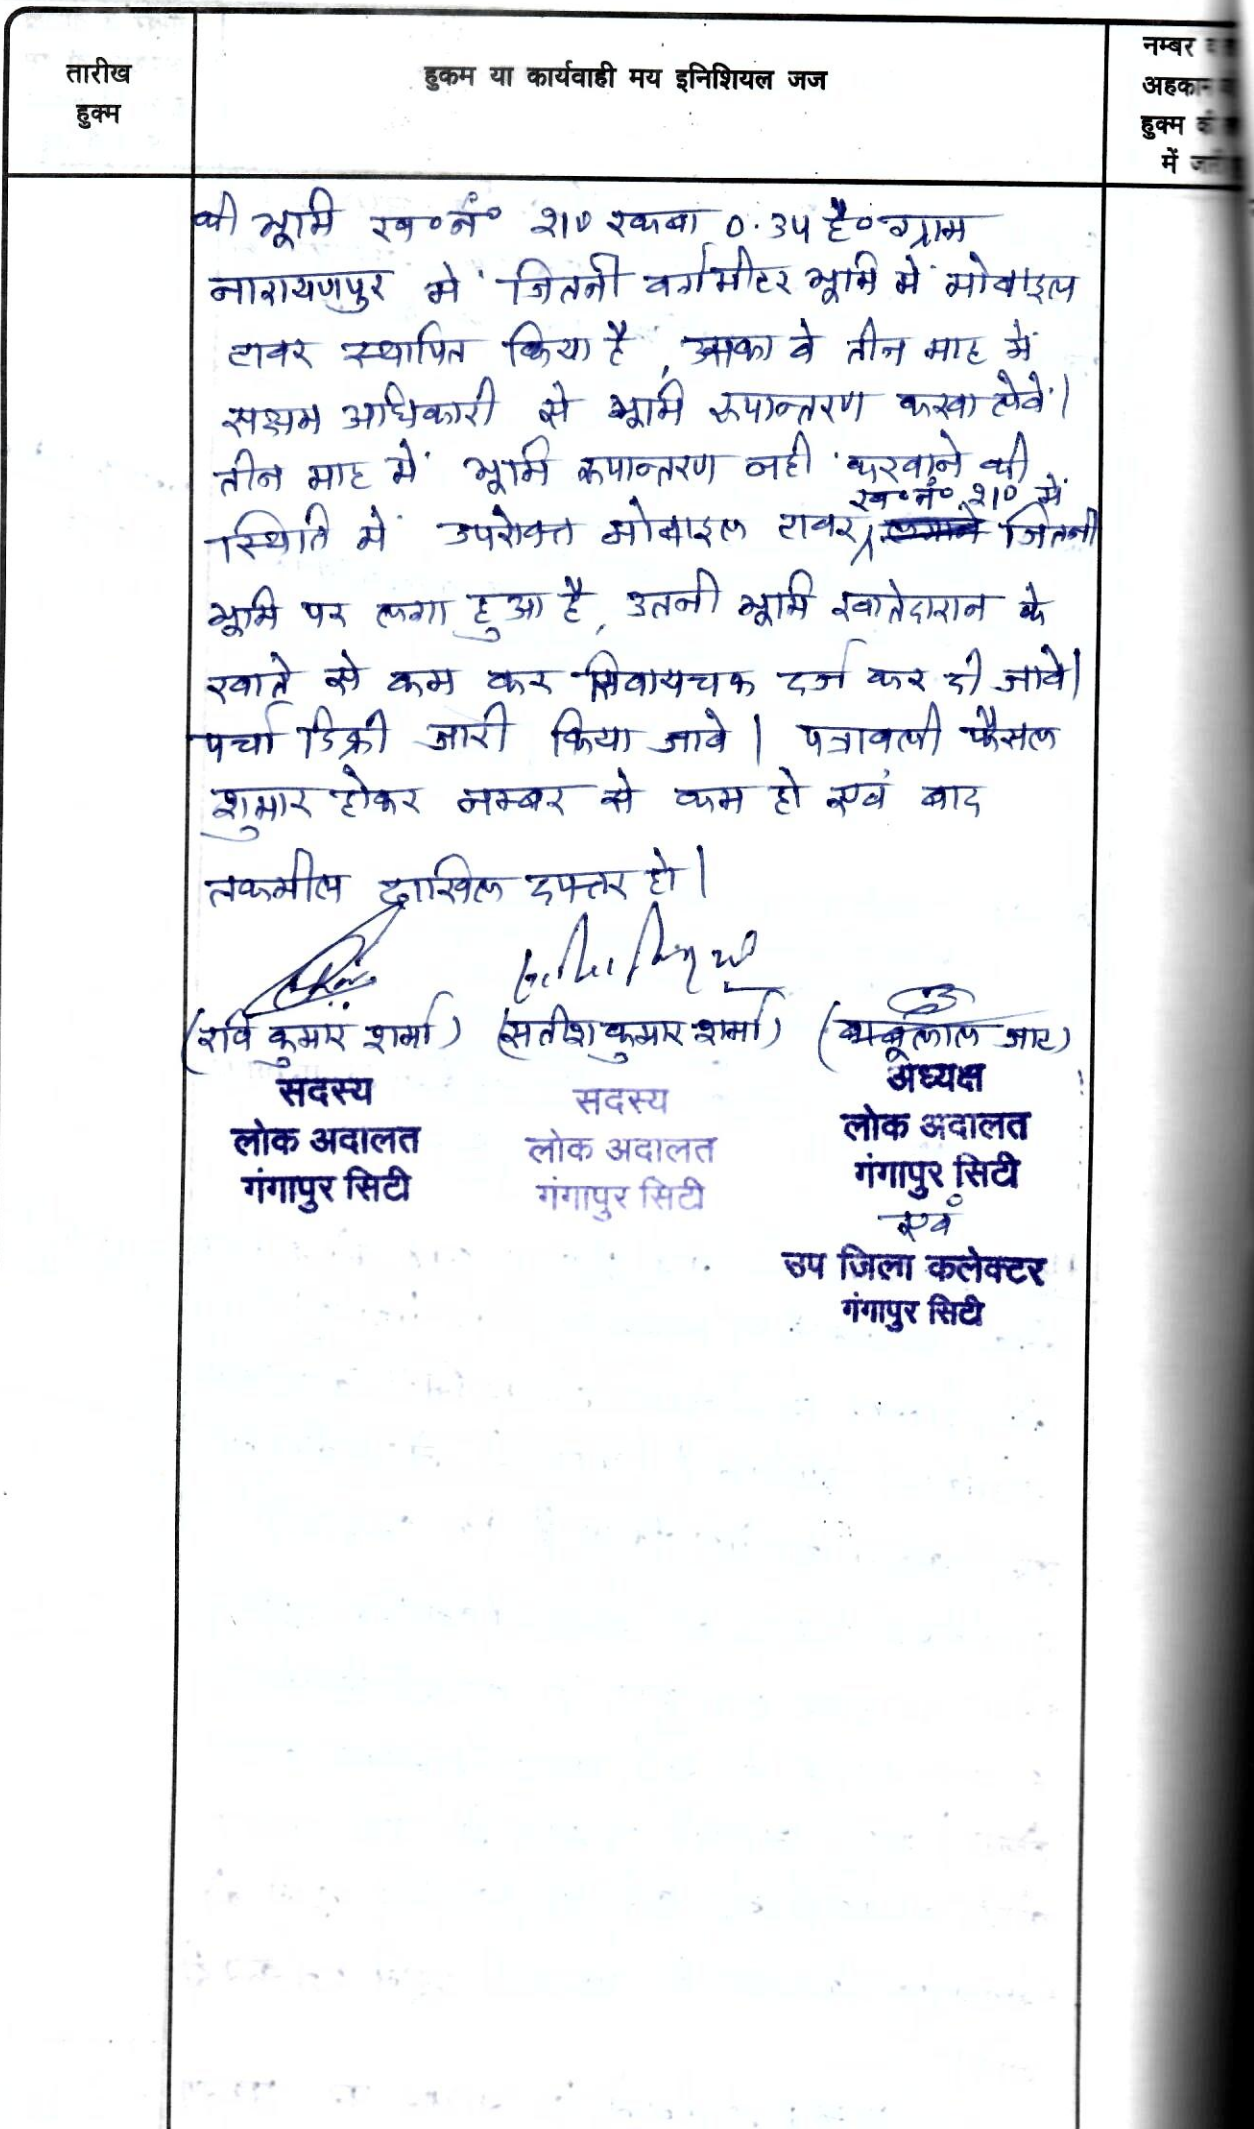 तारीख
हुक्म
हुकम या कार्यवाही मय इनिशियल जज
नम्बर
अहकाम
हुक्म की
में
की भूमि ख०नं० 210 रकबा 0.34 है० ग्राम
नारायणपुर में जितनी वर्गमीटर भूमि में मोबाइल
टावर स्थापित किया है, उसका वे तीन माह में
सक्षम अधिकारी से भूमि रूपान्तरण करवा लेवें।
तीन माह में भूमि रूपान्तरण नही करवाने की
ख०नं० 210 में
स्थिति में उपरोक्त मोबाइल टावर जितनी
भूमि पर लगा हुआ है, उतनी भूमि खातेदारान के
खाते से कम कर सिवायचक दर्ज कर दी जावे।
पर्चा डिक्री जारी किया जावे। पत्रावली फैसल
शुमार होकर नम्बर से कम हो एवं बाद
तकमील दाखिल दफ्तर हो।
(रवि कुमार शर्मा) (सतीश कुमार शर्मा) (बाबूलाल जाट)
सदस्य
लोक अदालत
गंगापुर सिटी
सदस्य
लोक अदालत
गंगापुर सिटी
अध्यक्ष
लोक अदालत
गंगापुर सिटी
एवं
उप जिला कलेक्टर
गंगापुर सिटी